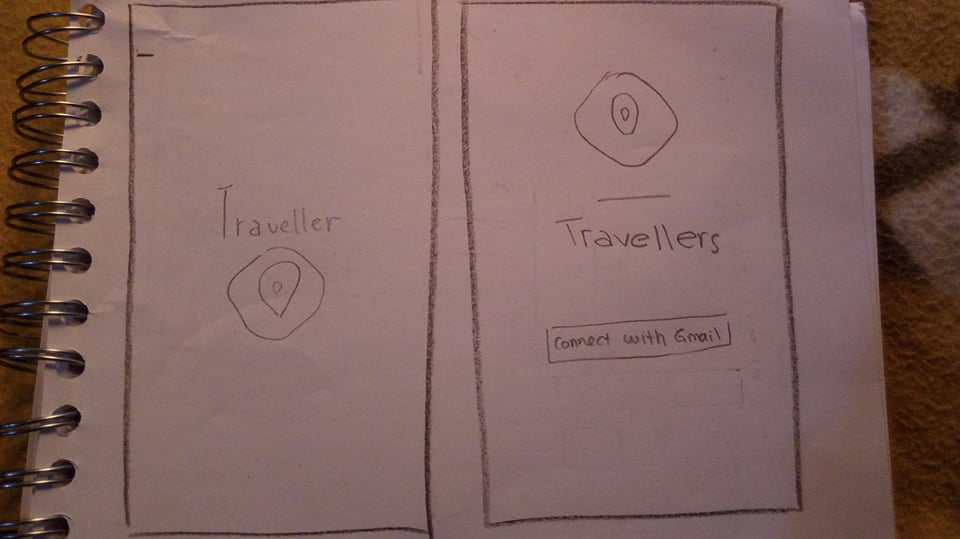 Traveller
Travellers
Connect with Gmail